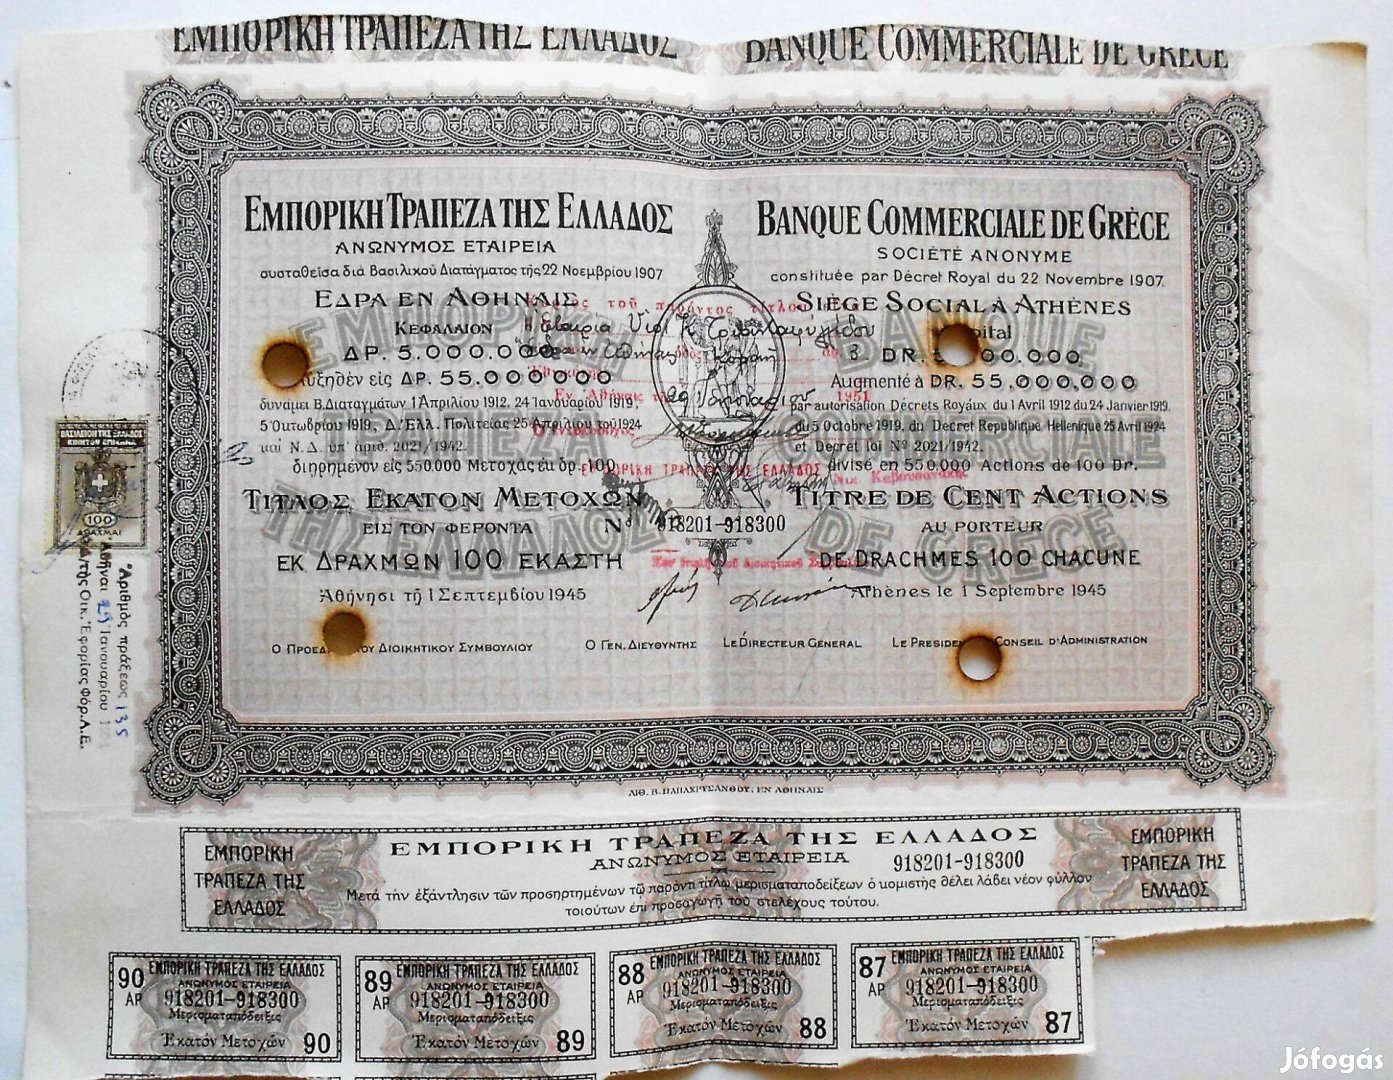 ΕΜΠΟΡΙΚΗ ΤΡΑΠΕΖΑ ΤΗΣ ΕΛΛΑΔΟΣ BANQUE COMMERCIALE DE GRÈCE
ΕΜΠΟΡΙΚΗ ΤΡΑΠΕΖΑ ΤΗΣ ΕΛΛΑΔΟΣ
ΑΝΩΝΥΜΟΣ ΕΤΑΙΡΕΙΑ
συσταθεῖσα διὰ Βασιλικοῦ Διατάγματος τῆς 22 Νοεμβρίου 1907
ΕΔΡΑ ΕΝ ΑΘΗΝΑΙΣ
ΚΕΦΑΛΑΙΟΝ
ΔΡ. 5.000.000
εἰς ΔΡ. 55.000.000
δυνάμει Β. Διαταγμάτων 1 Ἀπριλίου 1912, 24 Ἰανουαρίου 1919,
5 Ὀκτωβρίου 1919, Δ. Ἑλλ. Πολιτείας 25 Ἀπριλίου τοῦ 1924
καὶ Ν.Δ. ὑπ' ἀριθ. 2021/1942.
διῃρημένον εἰς 550.000 Μετοχὰς ἐκ δρ. 100
ΤΙΤΛΟΣ ΕΚΑΤΟΝ ΜΕΤΟΧΩΝ
ΕΙΣ ΤΟΝ ΦΕΡΟΝΤΑ
Νο 918201-918300
ΕΚ ΔΡΑΧΜΩΝ 100 ΕΚΑΣΤΗ
Ἀθήνησι τῇ 1 Σεπτεμβρίου 1945
BANQUE COMMERCIALE DE GRÈCE
SOCIÉTÉ ANONYME
constituée par Décret Royal du 22 Novembre 1907.
SIÈGE SOCIAL À ATHÈNES
DR. 000.000
Augmenté à DR. 55,000,000
par autorisation Décrets Royaux du 1 Avril 1912 du 24 Janvier 1919
du 5 Octobre 1919. du Decret Republique Hellenique 25 Avril 1924
et Decret loi No 2021/1942.
divisé en 550.000 Actions de 100 Dr.
TITRE DE CENT ACTIONS
AU PORTEUR
DE DRACHMES 100 CHACUNE
Athènes le 1 Septembre 1945
τοῦ παρόντος τίτλου
1951
ΕΜΠΟΡΙΚΗ ΤΡΑΠΕΖΑ ΤΗΣ ΕΛΛΑΔΟΣ
ΕΜΠΟΡΙΚΗ ΤΡΑΠΕΖΑ ΤΗΣ ΕΛΛΑΔΟΣ
BANQUE COMMERCIALE DE GRÈCE
ΔΙΟΙΚΗΤΙΚΟΥ ΣΥΜΒΟΥΛΙΟΥ
Ο ΓΕΝ. ΔΙΕΥΘΥΝΤΗΣ LE DIRECTEUR GÉNÉRAL
LE PRESIDENT CONSEIL D'ADMINISTRATION
ΒΑΣΙΛΕΙΟΝ ΤΗΣ ΕΛΛΑΔΟΣ
100
ΔΡΑΧΜΑΙ
Ἀριθμὸς πράξεως 135
Ἀθῆναι 29 Ἰανουαρίου
τῆς Οἰκ. Ἐφορίας Φορ. Α.Ε.
ΛΙΘ. Β. ΠΑΠΑΧΡΥΣΑΝΘΟΥ, ΕΝ ΑΘΗΝΑΙΣ
ΕΜΠΟΡΙΚΗ
ΤΡΑΠΕΖΑ ΤΗΣ
ΕΛΛΑΔΟΣ
ΕΜΠΟΡΙΚΗ ΤΡΑΠΕΖΑ ΤΗΣ ΕΛΛΑΔΟΣ
ΑΝΩΝΥΜΟΣ ΕΤΑΙΡΕΙΑ 918201-918300
Μετὰ τὴν ἐξάντλησιν τῶν προσηρτημένων τῷ παρόντι τίτλῳ μερισματαποδείξεων ὁ κομιστὴς θέλει λάβει νέον φύλλον
τοιούτων ἐπὶ προσαγωγῇ τοῦ στελέχους τούτου.
ΕΜΠΟΡΙΚΗ
ΤΡΑΠΕΖΑ ΤΗΣ
ΕΛΛΑΔΟΣ
90 ΕΜΠΟΡΙΚΗ ΤΡΑΠΕΖΑ ΤΗΣ ΕΛΛΑΔΟΣ
ΑΝΩΝΥΜΟΣ ΕΤΑΙΡΕΙΑ
ΑΡ 918201-918300
Μερισματαπόδειξις
Ἑκατὸν Μετοχῶν 90
89 ΕΜΠΟΡΙΚΗ ΤΡΑΠΕΖΑ ΤΗΣ ΕΛΛΑΔΟΣ
ΑΝΩΝΥΜΟΣ ΕΤΑΙΡΕΙΑ
ΑΡ 918201-918300
Μερισματαπόδειξις
Ἑκατὸν Μετοχῶν 89
88 ΕΜΠΟΡΙΚΗ ΤΡΑΠΕΖΑ ΤΗΣ ΕΛΛΑΔΟΣ
ΑΝΩΝΥΜΟΣ ΕΤΑΙΡΕΙΑ
ΑΡ 918201-918300
Μερισματαπόδειξις
Ἑκατὸν Μετοχῶν 88
87 ΕΜΠΟΡΙΚΗ ΤΡΑΠΕΖΑ ΤΗΣ ΕΛΛΑΔΟΣ
ΑΝΩΝΥΜΟΣ ΕΤΑΙΡΕΙΑ
ΑΡ 918201-918300
Μερισματαπόδειξις
Ἑκατὸν Μετοχῶν 87
Jófogás